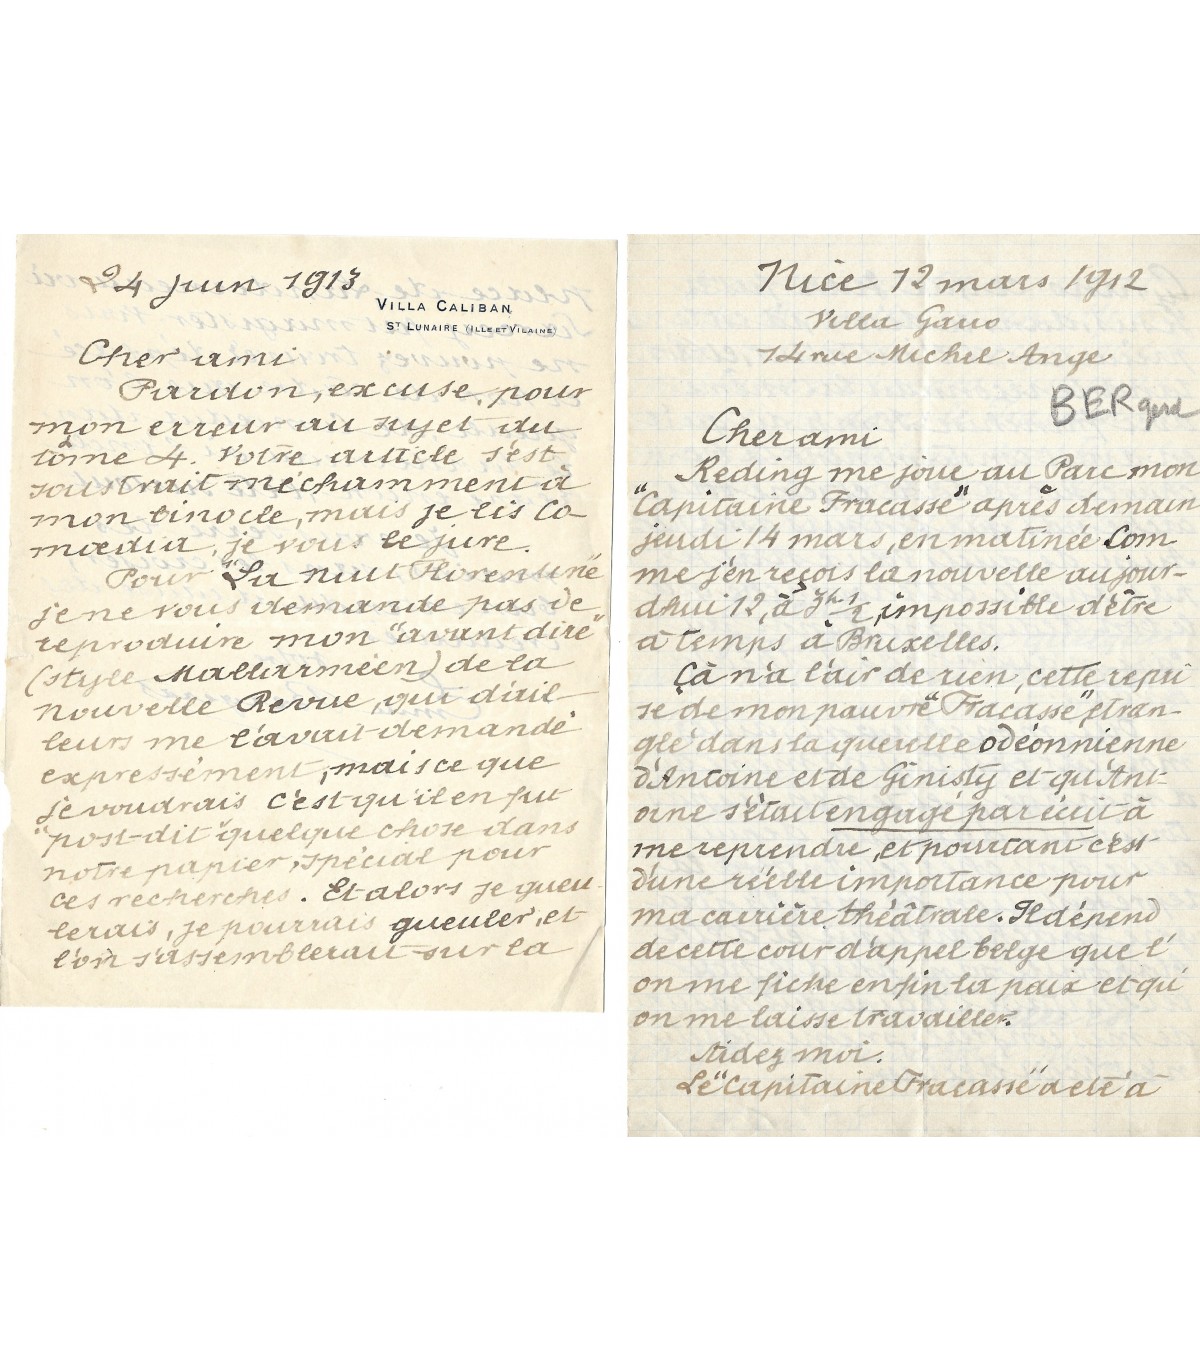 24 juin 1913
VILLA CALIBAN
ST LUNAIRE (ILLE ET VILAINE)
Cher ami
Pardon, excuse, pour
mon erreur au sujet du
tôme 4. Votre article s'est
soustrait méchamment à
mon binocle, mais je lis Co-
mœdia, je vous le jure.
Pour "La nuit Florentine"
je ne vous demande pas de
reproduire mon "avant dire"
(style Mallarméen) de la
nouvelle Revue, qui d'ail
leurs me l'avait demandé
expressément, mais ce que
je voudrais c'est qu'il en fut
"post-dit" quelque chose dans
notre papier, spécial pour
ces recherches. Et alors je gueu-
lerais, je pourrais gueuler, et
l'on s'assemblerait sur la
Nice 12 mars 1912
Villa
14 rue Michel Ange
BERgerd
Cher ami
Reding me joue au Parc mon
"Capitaine Fracasse" après demain
jeudi 14 mars, en matinée Com-
me j'en reçois la nouvelle aujour-
d'hui 12, à 3h 1/2, impossible d'être
à temps à Bruxelles.
Çà n'a l'air de rien, cette repri
se de mon pauvre "Fracasse" étran-
glé dans la querelle odéonnienne
d'Antoine et de Ginisty et qu'Ant-
oine s'était engagé par écrit à
me reprendre, et pourtant c'est
d'une réelle importance pour
ma carrière théâtrale. Il dépend
de cette cour d'appel belge que l'
on me fiche enfin la paix et qu'
on me laisse travailler.
Aidez moi.
Le "Capitaine Fracasse" a été à